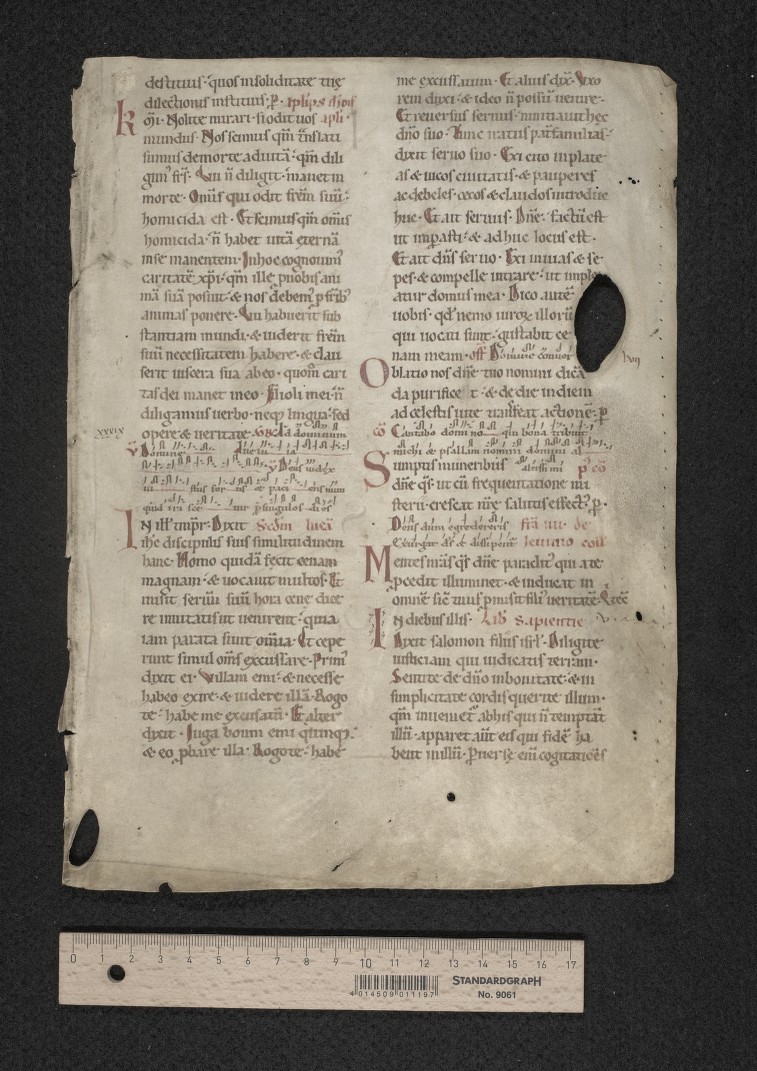 destituis. quos insoliditate tuę
dilectionis instituis. ꝑ.
K mi. Nolite mirari. si odit uos
mundus. Nos scimus qm̄ tͣnslati
sumus de morte ad uitā. qm̄ dili
gim᷒ fr̄s. Qui n̄ diligit. manet in
morte. Om̄is qui odit frēm suū.
homicida est. Et scimus qm̄ om̄is
homicida. n̄ habet uitā ęternā
inse manentem. Inhoc cognouim᷒
caritatē xp̄i. qm̄ ille ꝓnobis ani
mā suā posuit. & nos debem᷒ ꝓ frīb᷒
animas ponere. Qui habuerit sub
stantiam mundi. & uiderit frēm
suū necessitatem habere. & clau
serit uiscera sua abeo. quom̄ cari
tas dei manet ineo. Filioli mei. n̄
diligamus uerbo. neq; lingua. sed
opere & ueritate. Ad dominum
xxxix
V Domine
V Deus iudex
iustus fortis et paciens num
quid irascetur ꝑ singulos dies
I N ill̄ temp̄r. Dixit Scd̄m lucā
ih̄c discipulis suis similitudinem
hanc. Homo quidā fecit cenam
magnam. & uocauit multos. Et
misit seruū suū hora cene dice
re inuitatis ut uenirent. quia
iam parata sunt om̄ia. Et cepe
runt simul om̄s excusare. Prim᷒
dixit ei. Villam emi. & necesse
habeo exire. & uidere illā. Rogo
te. habe me excusatū. Et alter
dixit. Iuga boum emi quinq;.
& eo ꝓbare illa. Rogo te. habe
me excusatum. Et alius dix̄. Vxo
rem duxi. & ideo n̄ possū uenire.
Et reuersus seruus. nuntiauit hec
dn̄o suo. Tunc iratus pat̄familias.
dixit seruo suo. Exi cito inplate
as & uicos ciuitatis. & pauperes
ac debiles. cecos & claudos introduc
huc. Et ait seruus. Dn̄e. factū est
ut imꝑasti. & adhuc locus est.
Et ait dn̄s seruo. Exi inuias & se
pes. & compelle intrare. ut imple
atur domus mea. Dico autē
uobis. qd̄ nemo uiroꝝ illorū
qui uocati sunt. gustabit ce
nam meam. off̄ Domine conuer
lvii
O blatio nos dn̄e tuo nomini dicā
da purificet. & de die indiem
ad celestis uite transferat actionē. ꝑ
co Cantabo domino qui bona tribuit
michi & psallam nomini domini al
S umptis muneribus altissimi p̄ co
dn̄e qs̄. ut cū frequentatione mi
sterii. crescat nr̄e salutis effect᷒. ꝑ.
Deus dum egredereris
Exurgat ds̄ & dissipent
M entes nr̄as qs̄ dn̄e paraclit᷒ qui a te
ꝓcedit illuminet. & inducat in
omnē sic̄ tuus ꝓmisit fili᷒ ueritatē.
I N diebus illis. Lib̄ Sapientie
Dixit salomon filiis isr̄l. Diligite
iusticiam qui iudicatis terram.
Sentite de dn̄o inbonitate. & in
simplicitate cordis querite illum.
qm̄ inuenit᷒ abhis qui n̄ temptāt
illū. apparet aūt eis qui fidē ha
bent in illū. Peruerse eni᷒ cogitationes
0 1 2 3 4 5 6 7 8 9 10 11 12 13 14 15 16 17
4 014509 011197
STANDARDGRAPH
No. 9061